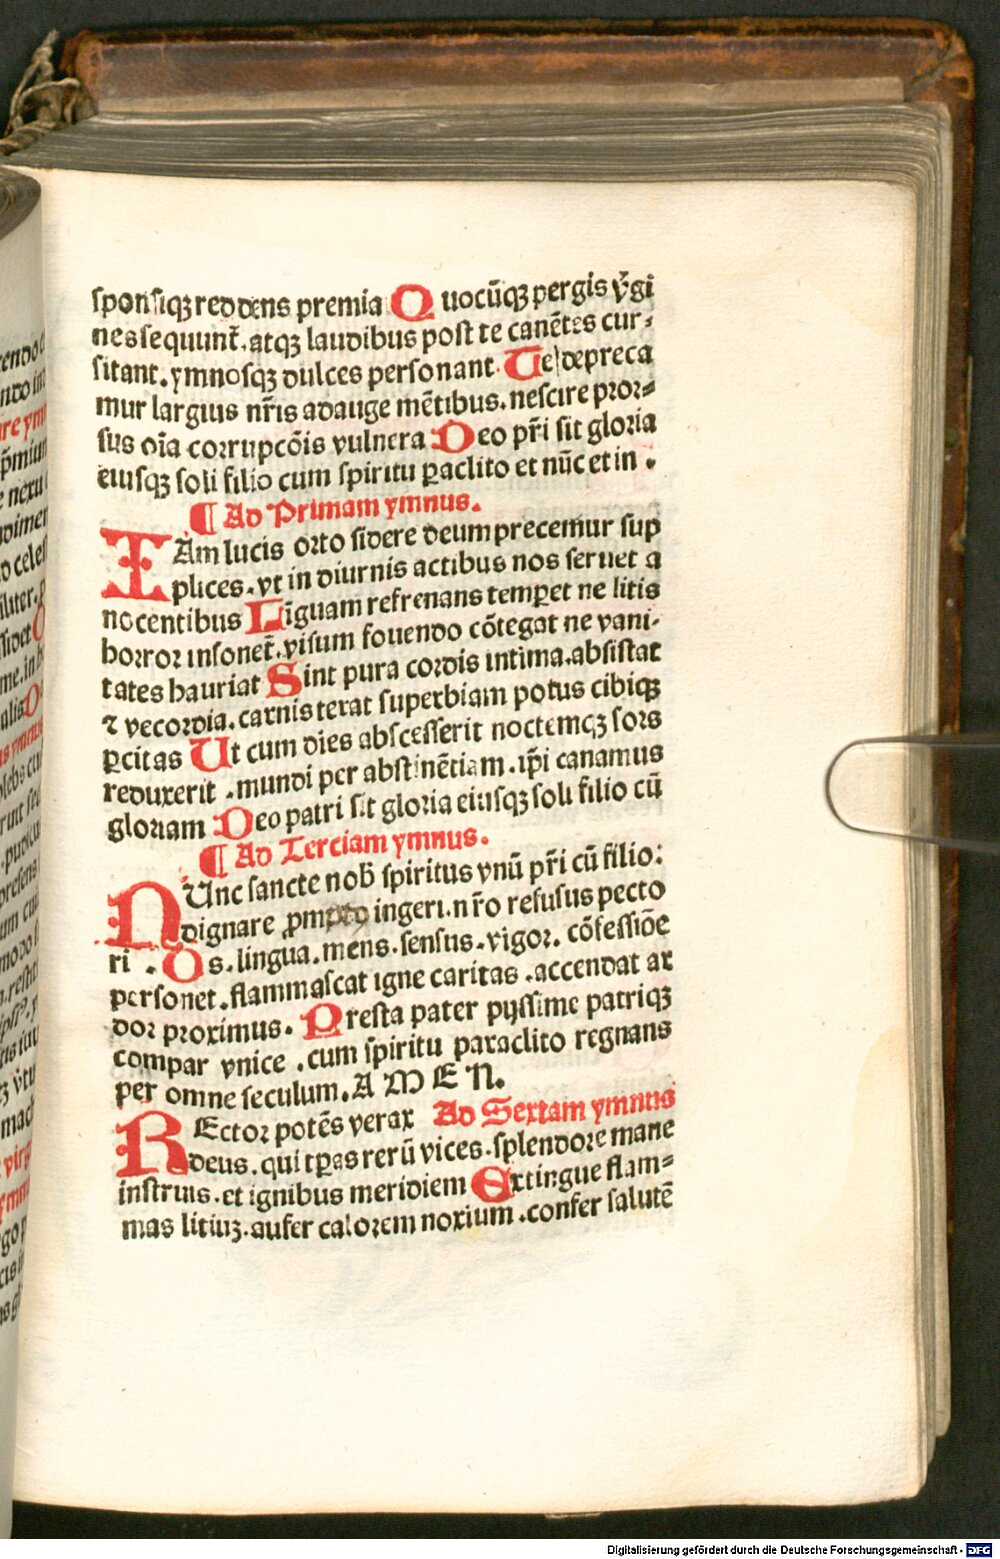 sponsiqꝫ reddens premia Quocūqꝫ pergis v̄gi
nes sequunt̄. atqꝫ laudibus post te canētes cur⸗
sitant. ymnosqꝫ dulces personant. Te depreca
mur largius nr̄is adauge mētibus. nescire pror⸗
sus oīa corrupcōis vulnera Deo pr̄i sit gloria
eiusqꝫ soli filio cum spiritu ꝑaclito et nūc et in .
¶ Ad Primam ymnus.
IAm lucis orto sidere deum precemur sup
plices. vt in diurnis actibus nos seruet a
nocentibus Līguam refrenans temꝑet ne litis
horror insonet̄. visum fouendo cōtegat ne vani⸗
tates hauriat Sint pura cordis intima. absistat
⁊ vecordia. carnis terat superbiam potus cibiqꝫ
ꝑcitas Ut cum dies abscesserit noctemqꝫ sors
reduxerit . mundi per abstinētiam . ip̄i canamus
gloriam Deo patri sit gloria eiusqꝫ soli filio cū
¶ Ad Terciam ymnus.
NUnc sancte nob̄ spiritus vnū pr̄i cū filio:
dignare ꝓmpto ingeri. nr̄o refusus pecto
ri . Os. lingua. mens. sensus. vigor. cōfessiōe
personet. flammascat igne caritas . accendat ar
dor proximus. Presta pater pijssime patriqꝫ
compar vnice . cum spiritu paraclito regnans
per omne seculum. A M E N.
REctor potēs verax Ad Sextam ymnus
deus. qui tꝑas rerū vices. splendore mane
instruis. et ignibus meridiem Extingue flam⸗
mas litiuꝫ. aufer calorem noxium . confer salutē
Digitalisierung gefördert durch die Deutsche Forschungsgemeinschaft - DFG